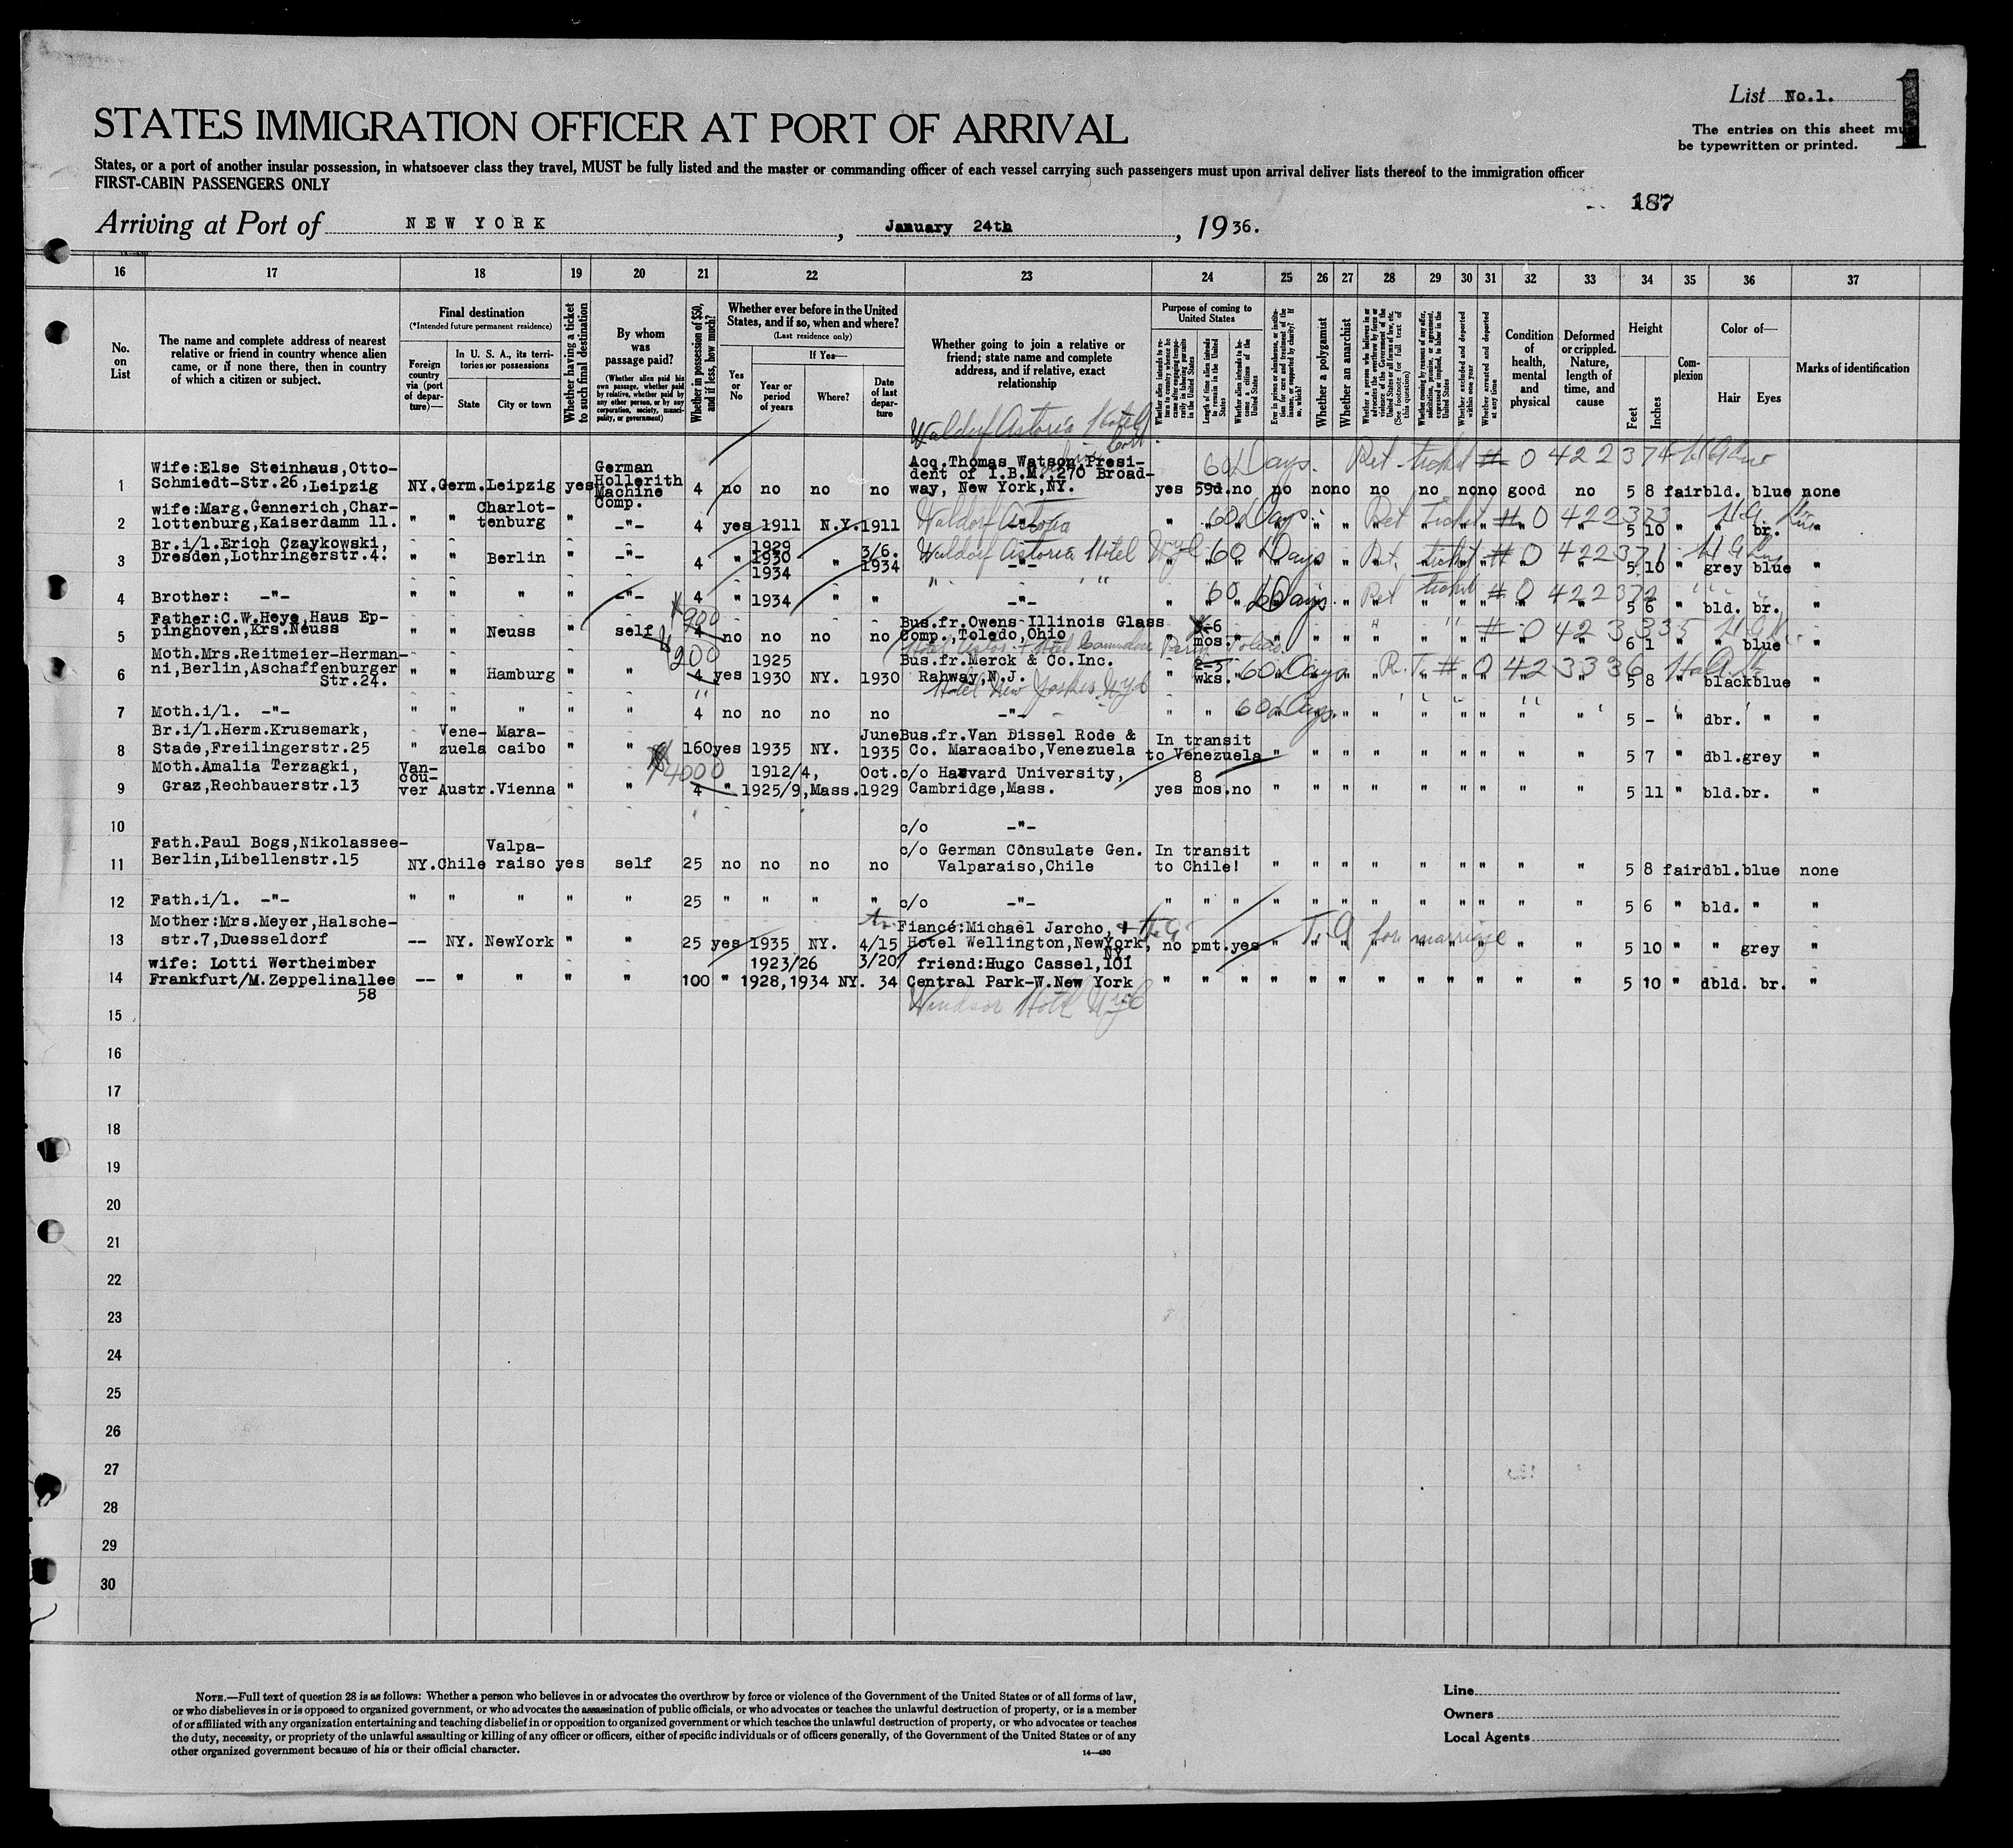 List No.1.
1
STATES IMMIGRATION OFFICER AT PORT OF ARRIVAL
The entries on this sheet must
be typewritten or printed.
States, or a port of another insular possession, in whatsoever class they travel, MUST be fully listed and the master or commanding officer of each vessel carrying such passengers must upon arrival deliver lists thereof to the immigration officer
FIRST-CABIN PASSENGERS ONLY
187
Arriving at Port of NEW YORK, January 24th, 1936.
16 17 18 19 20 21 22 23 24 25 26 27 28 29 30 31 32 33 34 35 36 37
No. on List
The name and complete address of nearest relative or friend in country whence alien came, or if none there, then in country of which a citizen or subject.
Final destination
(*Intended future permanent residence)
Foreign country via (port of departure)—
In U. S. A., its territories or possessions
State
City or town
Whether having a ticket to such final destination
By whom was passage paid?
(Whether alien paid his own passage, whether paid by relative, whether paid by any other person, or by any corporation, society, municipality, or government)
Whether in possession of $50, and if less, how much?
Whether ever before in the United States, and if so, when and where?
(Last residence only)
Yes or No
If Yes—
Year or period of years
Where?
Date of last departure
Whether going to join a relative or friend; state name and complete address, and if relative, exact relationship
Purpose of coming to United States
Length of time alien intends to remain in the United States
Whether alien intends to become a citizen of the United States
Whether a polygamist
Whether an anarchist
Whether excluded and deported within one year
Whether arrested and deported at any time
Condition of health, mental and physical
Deformed or crippled. Nature, length of time, and cause
Height
Feet
Inches
Complexion
Color of—
Hair
Eyes
Marks of identification
Waldorf Astoria Hotel
60 Days. Ret ticket # 0 422374
1 Wife:Else Steinhaus,Otto-Schmiedt-Str.26,Leipzig NY. Germ. Leipzig yes German Hollerith Machine Comp. 4 no no no no Acq.Thomas Watson,President of I.B.M.,270 Broadway, New York,NY. yes 59d. no no no no no no no no good no 5 8 fair bld. blue none
Waldorf Astoria 60 Days Ret ticket # 0 422373
2 wife:Marg.Gennerich,Charlottenburg,Kaiserdamm 11. " " Charlottenburg " -"- 4 yes 1911 N.Y. 1911 -"- " " " " " " " " " " " " 5 10 " " br. "
Waldorf Astoria Hotel Nyc 60 Days Ret. ticket # 0 422371
3 Br.i/l.Erich Czaykowski, Dresden,Lothringerstr.4. " " Berlin " -"- 4 " 1929 1930 1934 " 3/6. 1934 -"- " " " " " " " " " " " " 5 10 " grey blue "
60 Days Ret ticket # 0 422372
4 Brother: -"- " " " " -"- 4 " 1934 " " -"- " " " " " " " " " " " " 5 6 " bld. br. "
$900 # 0 423335
5 Father:C.W.Heye,Haus Eppinghoven,Krs.Neuss " " Neuss " self 4 no no no no Bus.fr.Owens-Illinois Glass Comp.,Toledo,Ohio " 5-6 mos. " " " " " " " " " " 6 1 " " blue "
$200 60 Days R.T. # 0 423336
6 Moth.Mrs.Reitmeier-Hermanni,Berlin,Aschaffenburger Str.24. " " Hamburg " " 4 yes 1925 1930 NY. 1930 Bus.fr.Merck & Co.Inc. Rahway,N.J. " 2-3 wks. " " " " " " " " " 5 8 " black blue "
Hotel New Yorker Nyc
60 Days.
7 Moth.i/l. -"- " " " " " 4 no no no no -"- " " " " " " " " " " " 5 - " dbr. " "
8 Br.i/l.Herm.Krusemark, Stade,Freilingerstr.25 " Venezuela Maracaibo " " 160 yes 1935 NY. June 1935 Bus.fr.Van Dissel Rode & Co. Maracaibo,Venezuela In transit to Venezuela " " " " " " " " " 5 7 " dbl. grey "
$4000
9 Moth.Amalia Terzagki, Graz,Rechbauerstr.13 Vancouver Austr. Vienna " " 4 " 1912/4, 1925/9, Mass. Oct. 1929 c/o Harvard University, Cambridge,Mass. yes 8 mos. no " " " " " " " " " 5 11 " bld. br. "
10 c/o -"-
11 Fath.Paul Bogs,Nikolassee-Berlin,Libellenstr.15 NY. Chile Valparaiso yes self 25 no no no no c/o German Consulate Gen. Valparaiso,Chile In transit to Chile! " " " " " " " " " 5 8 fair dbl. blue none
12 Fath.i/l. -"- " " " " " 25 " " " " c/o -"- " " " " " " " " " " " " 5 6 " bld. " "
T.G for marriage
13 Mother:Mrs.Meyer,Halschestr.7,Duesseldorf -- NY. NewYork " " 25 yes 1935 NY. 4/15 Fiancé:Michael Jarcho, Hotel Wellington,NewYork, NY. no pmt. yes " " " " " " " " 5 10 " " grey "
14 wife: Lotti Wertheimber Frankfurt/M.Zeppelinallee 58 -- " " " " 100 " 1923/26 1928,1934 NY. 3/20/ 34 friend:Hugo Cassel,101 Central Park-W.New York " " " " " " " " " " " " 5 10 " dbld. br. "
Windsor Hotel Nyc
15
16
17
18
19
20
21
22
23
24
25
26
27
28
29
30
NOTE.—Full text of question 28 is as follows: Whether a person who believes in or advocates the overthrow by force or violence of the Government of the United States or of all forms of law,
or who disbelieves in or is opposed to organized government, or who advocates the assassination of public officials, or who advocates or teaches the unlawful destruction of property, or is a member
of or affiliated with any organization entertaining and teaching disbelief in or opposition to organized government or which teaches the unlawful destruction of property, or who advocates or teaches
the duty, necessity, or propriety of the unlawful assaulting or killing of any officer or officers, either of specific individuals or of officers generally, of the Government of the United States or of any
other organized government because of his or their official character.
14—430
Line
Owners
Local Agents